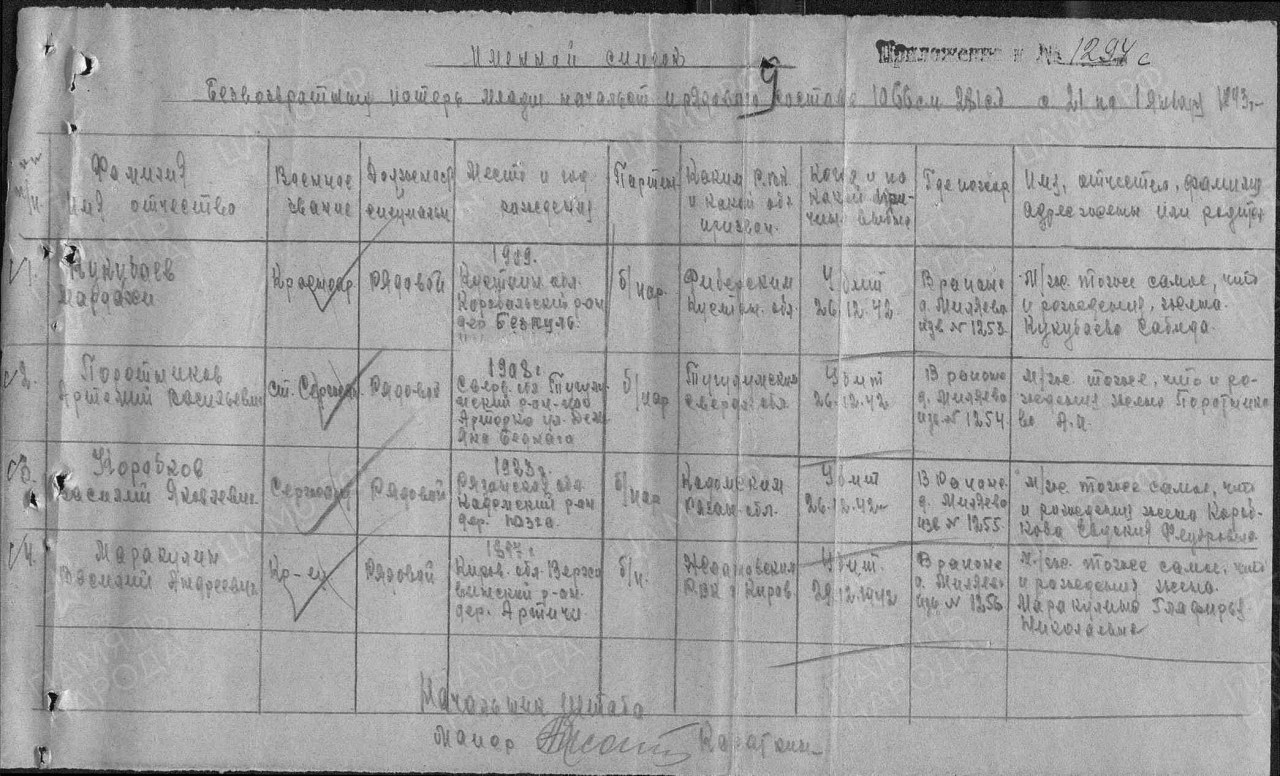 Именной список
Приложение к № 1294с
9
Безвозвратных потерь младш начальст и рядового состава 1066 сп 281сд с 21 по 1 января 1943 г.
п/п
Фамилия
Имя отчество
Военное
звание
Должность
и специальн
Место и год
рождения
Партийн
Каким РВК
и какой обл
призван.
Когда и по
какой при-
чине выбыл
Где похор
Имя, отчество, фамилия
адрес жены или родител
1.
Кукубаев
Мардажи
Красноар
Рядовой
Кустан. обл.
дер. Безкуль.
б/пар.
Кустан. обл.
Убит
26.12.42
В районе
д. Миляево
изв № 1253
М/ж. тоже самое, что
и рождения, жена.
Кукубаева Сабида.
2.
Поротников
Артемий Васильевич
ст. Сержант
Рядовой
1908 г.
Сверд. обл. Тугулы-
мский р-он
б/пар
Тугулимским
Свердл. обл.
Убит
26.12.42
В районе
д. Миляево
изв № 1254
М/ж. тоже, что и ро-
ждения жена Поротнико-
ва А.П.
3.
Коробков
Василий Яковлевич
Сержант
Рядовой
1923 г.
Рязанской обл.
Кадомский р-он
дер. Юзга.
б/пар
Кадомским
Рязан. обл.
Убит
26.12.42
В районе
д. Миляево
изв № 1255
М/ж. тоже самое, что
и рождения жена Короб-
кова Евдокия Федоровна
4.
Маракулин
Василий Андреевич
Кр-ец
Рядовой
Киров. обл. Верхо
винский р-он.
дер. Артичи.
б/п.
Ждановским
РВК г Киров.
Убит.
29.12.1942
В районе
д. Миляево
изв № 1256
М/ж. тоже самое, что
и рождения жена.
Маракулина Глафира
Николаевна
Начальник штаба
майор Караткин
ЦАМО РФ
ПАМЯТЬ
НАРОДА